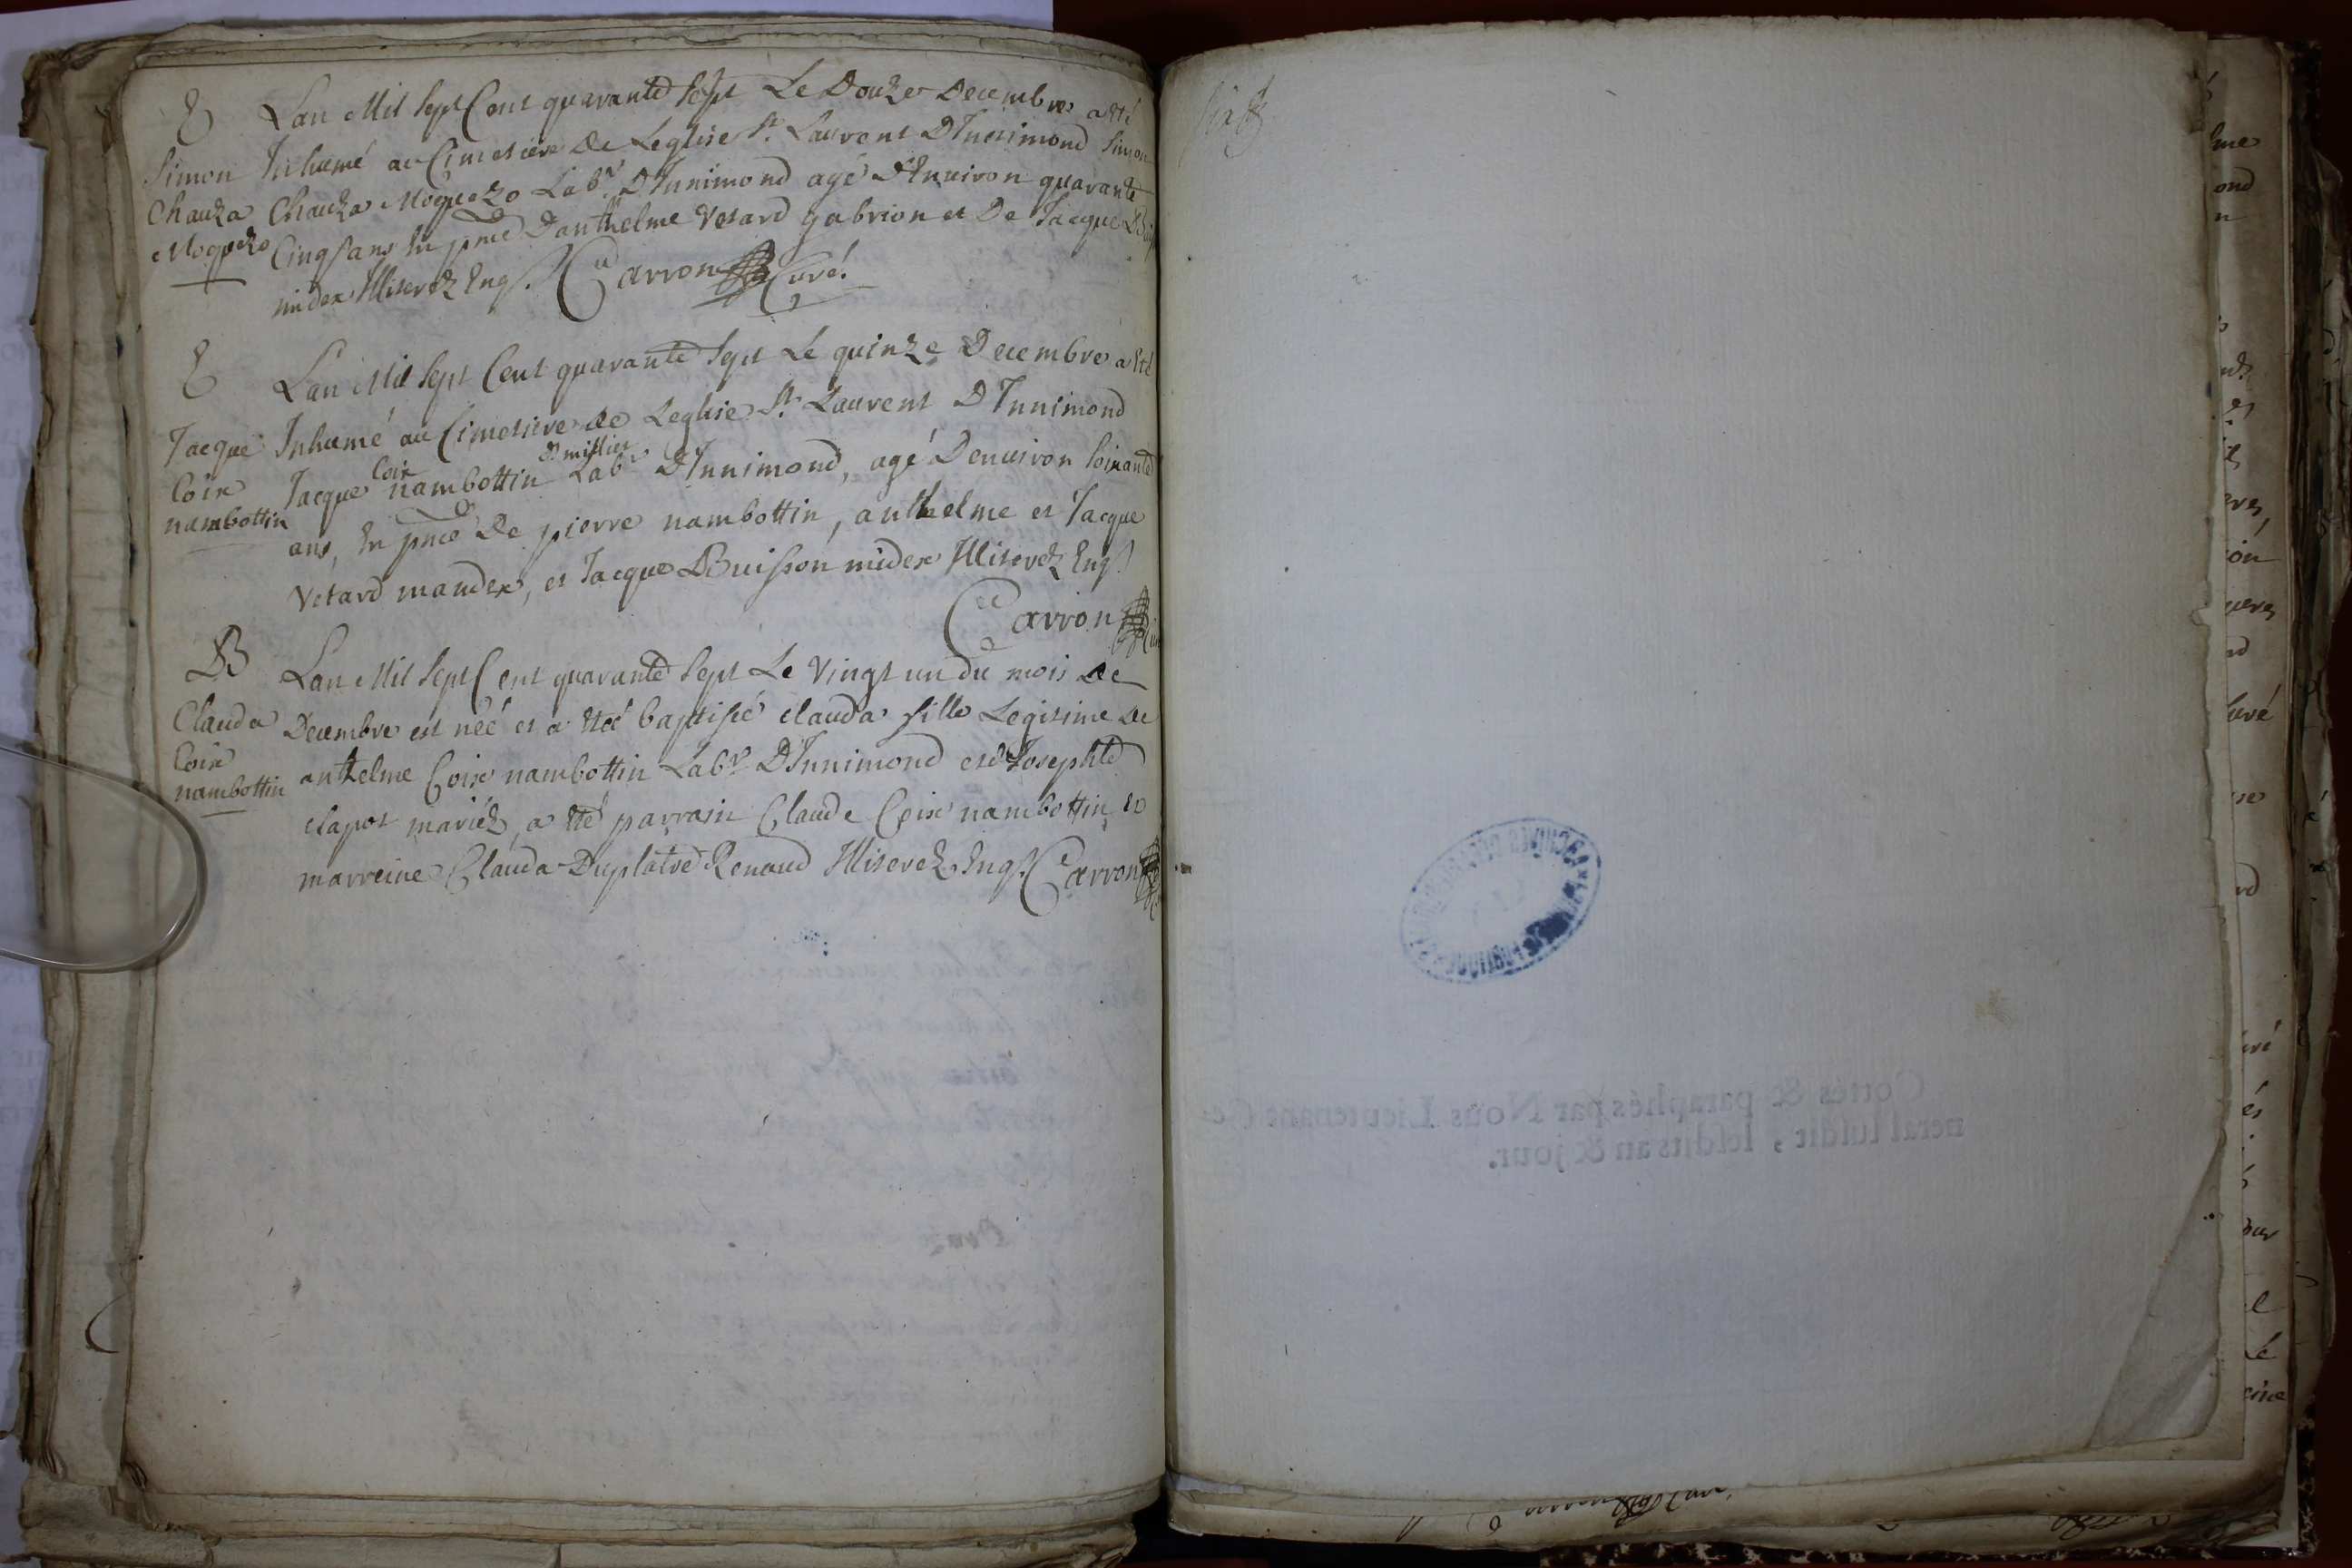 Lan Mil Sept Cent quarante Sept Le Douze Decembre a Eté
Simon Inhumé au Cimetiere De Leglise St Laurent DInnimond Simon
Chauza Chauza Moquezo Labr DInnimond agé dEnuiron quarante
Moquezo Cinq ans En pnce Danthelme Vetard gabrion et De Jacque
midex Illiterez Enq. Carron Curé.
Lan Mil Sept Cent quarante Sept Le quinze Decembre a Eté
Jacque Inhumé au Cimetiere de Leglise St Laurent DInnimond
Coix Jacque Coix nambottin Labr DInnimond, agé Denuiron Soixante
nambottin ans, En pnce De pierre nambottin, anthelme et Jacque
Vetard mandex, et Jacque Buisson midex Illiterez Enq.
Carron
B Lan Mil Sept Cent quarante Sept Le Vingt un du mois de
Clauda Decembre est néé et a Eteé baptiséé clauda fille Legitime de
Coix anthelme Coix nambottin Labr DInnimond et de Josephte
nambottin clapot mariéz, a Eté parrain Claude Coix nambottin et
marreine Clauda Duplatre Renaud Illiterez Enq. Carron
Cottés & paraphés par Nous Lieutenant Ge-
neral susdit, lesdits an & jour.